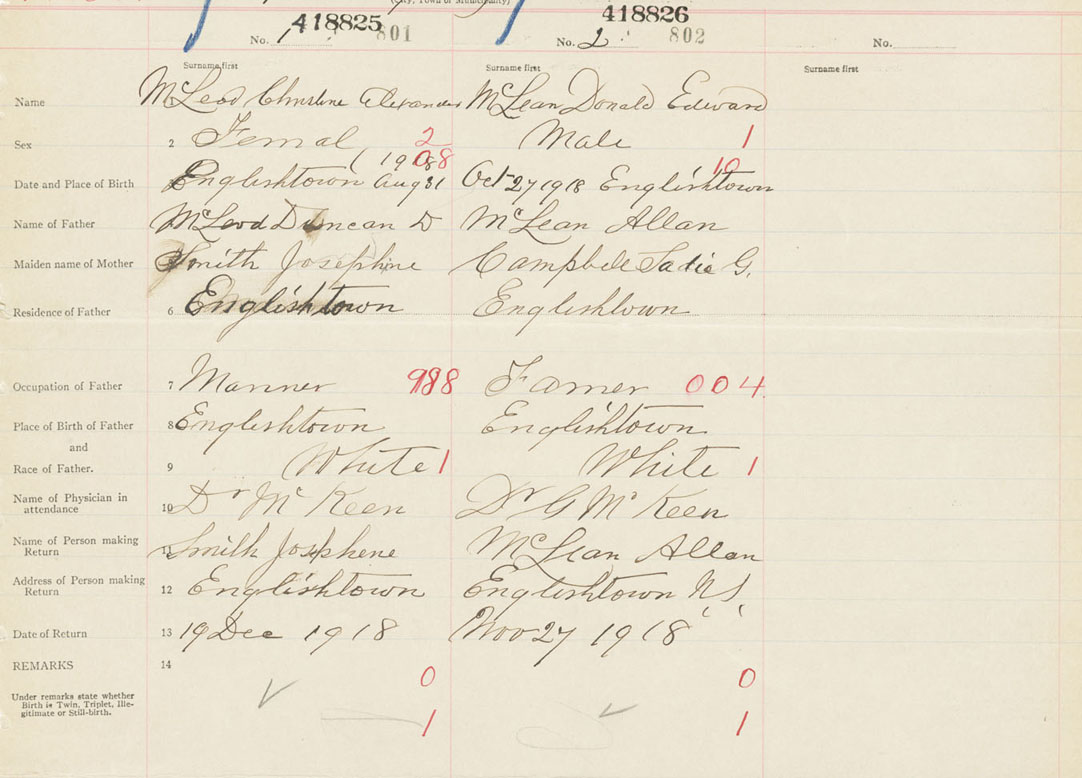 (City, Town or Municipality)
418825 418826
No. 1 801 No. 2 802 No.
Surname first Surname first Surname first
Name McLeod Christene Alexander McLean Donald Edward
Sex 2 Femal 2 Male 1
(1918 08 10
Date and Place of Birth Englishtown Aug 31 Oct 27 1918 Englishtown
Name of Father McLeod Duncan D McLean Allan
Maiden name of Mother Smith Josephine Campbell Sadie G.
Residence of Father 6 Englishtown Englishtown
Occupation of Father 7 Mariner 988 Farmer 004
Place of Birth of Father 8 Englishtown Englishtown
and
Race of Father. 9 White 1 White 1
Name of Physician in
attendance 10 Dr McKeen Dr G McKeen
Name of Person making
Return 11 Smith Josphene McLean Allan
Address of Person making
Return 12 Englishtown Englishtown NS
Date of Return 13 19 Dec 1918 Nov 27 1918
REMARKS 14
0 0
Under remarks state whether
Birth is Twin, Triplet, Ille-
gitimate or Still-birth.
1 1